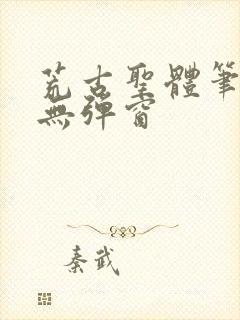 荒古聖體筆
無彈窗
秦武